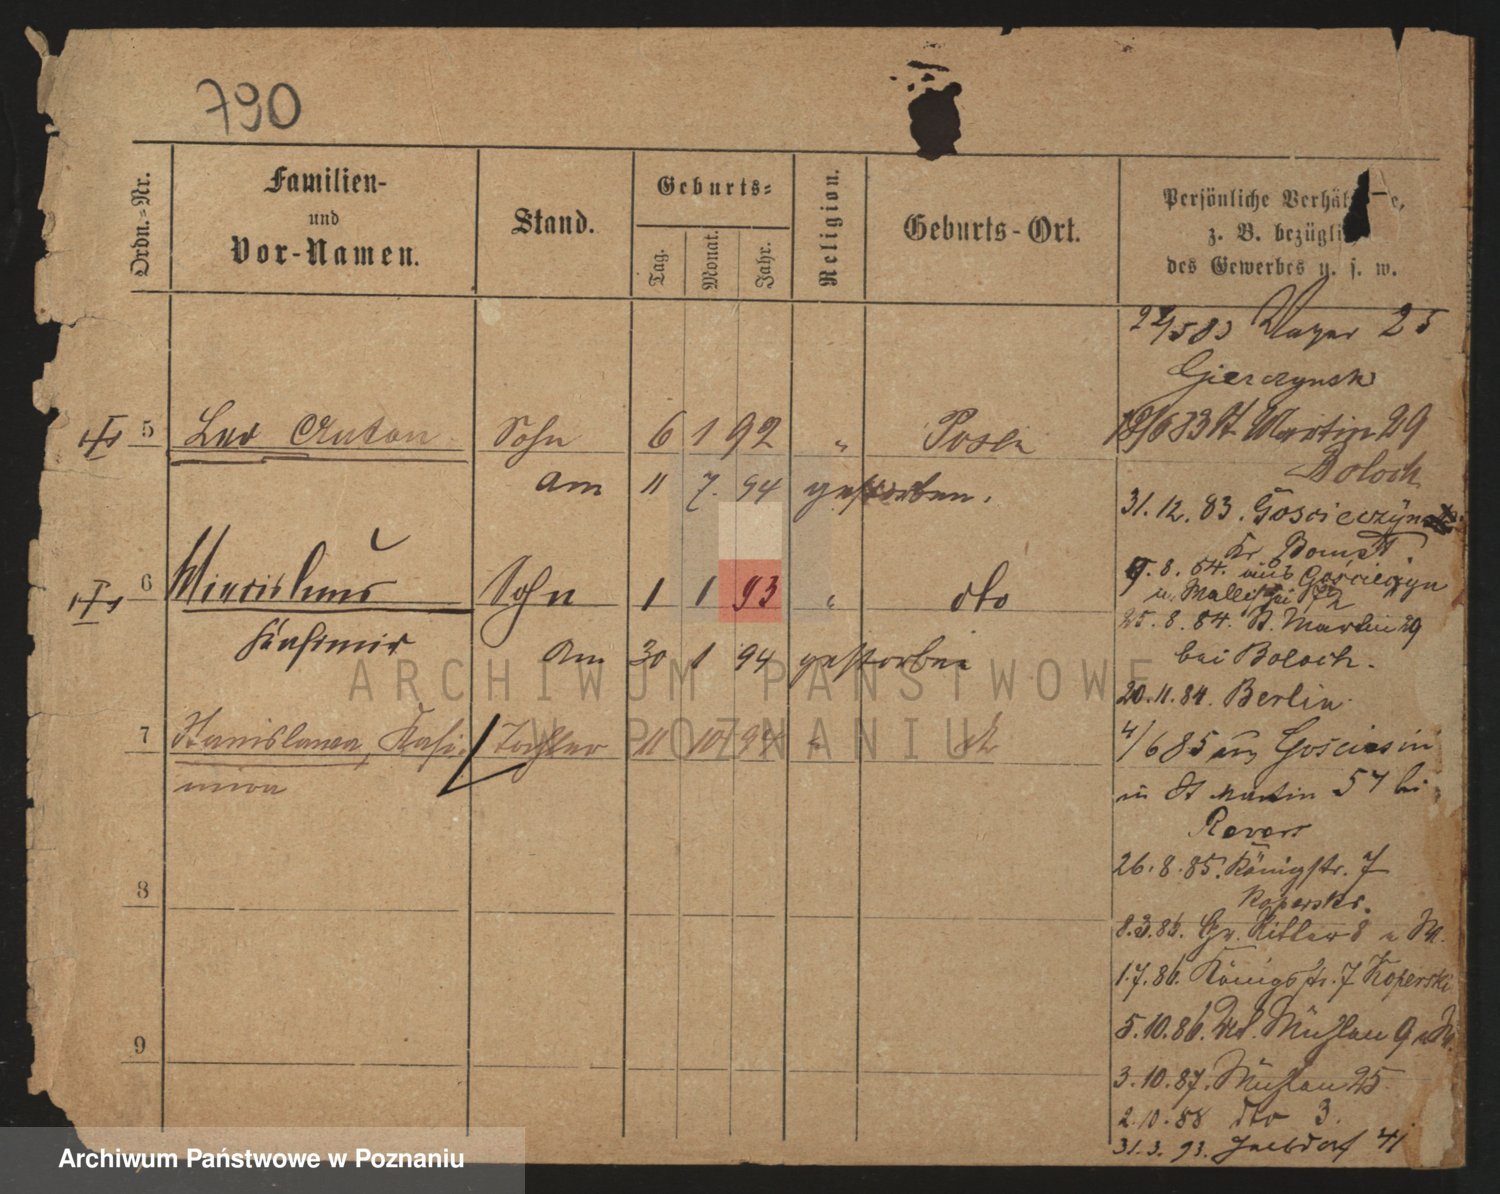 790
Ordn.-Nr.
Familien-
und
Vor-Namen.
Stand.
Geburts-
Tag.
Monat.
Jahr.
Religion.
Geburts-Ort.
Persönliche Verhäl e,
z. B. bezügli
des Gewerbes u. s. w.
5 Leo Anton Sohn 6 1 92 " Posen
am 11 7. 94 gestorben.
6 Miecislaus Sohn 1 1 93 " dto
Kasimir am 30 1 94 gestorben
7 Stanislawa, Kasi- Tochter 11 10 94 "
mira
8
9
22/5 83 25
Gierczynski
18/6 83 St Martin 29
Boloch
31. 12. 83. Gościeczyn
Kr Bomst.
9. 8. 84. aus Gościeczyn
25. 8. 84. St. Martin 29
bei Boloch.
20. 11. 84. Berlin.
4/6 85 aus Gościeszin
in St Martin 57 bei
26. 8. 85. Königstr. 7
Koperski.
8. 3. 86. Gr. Ritter 8
1. 7. 86. Königstr. 7 Koperski
5. 10. 86. Mühlen 9
3. 10. 87. Mühlen 25
2. 10. 88 dto 3.
31. 3. 93. 41
ARCHIWUM PAŃSTWOWE
W POZNANIU
Archiwum Państwowe w Poznaniu